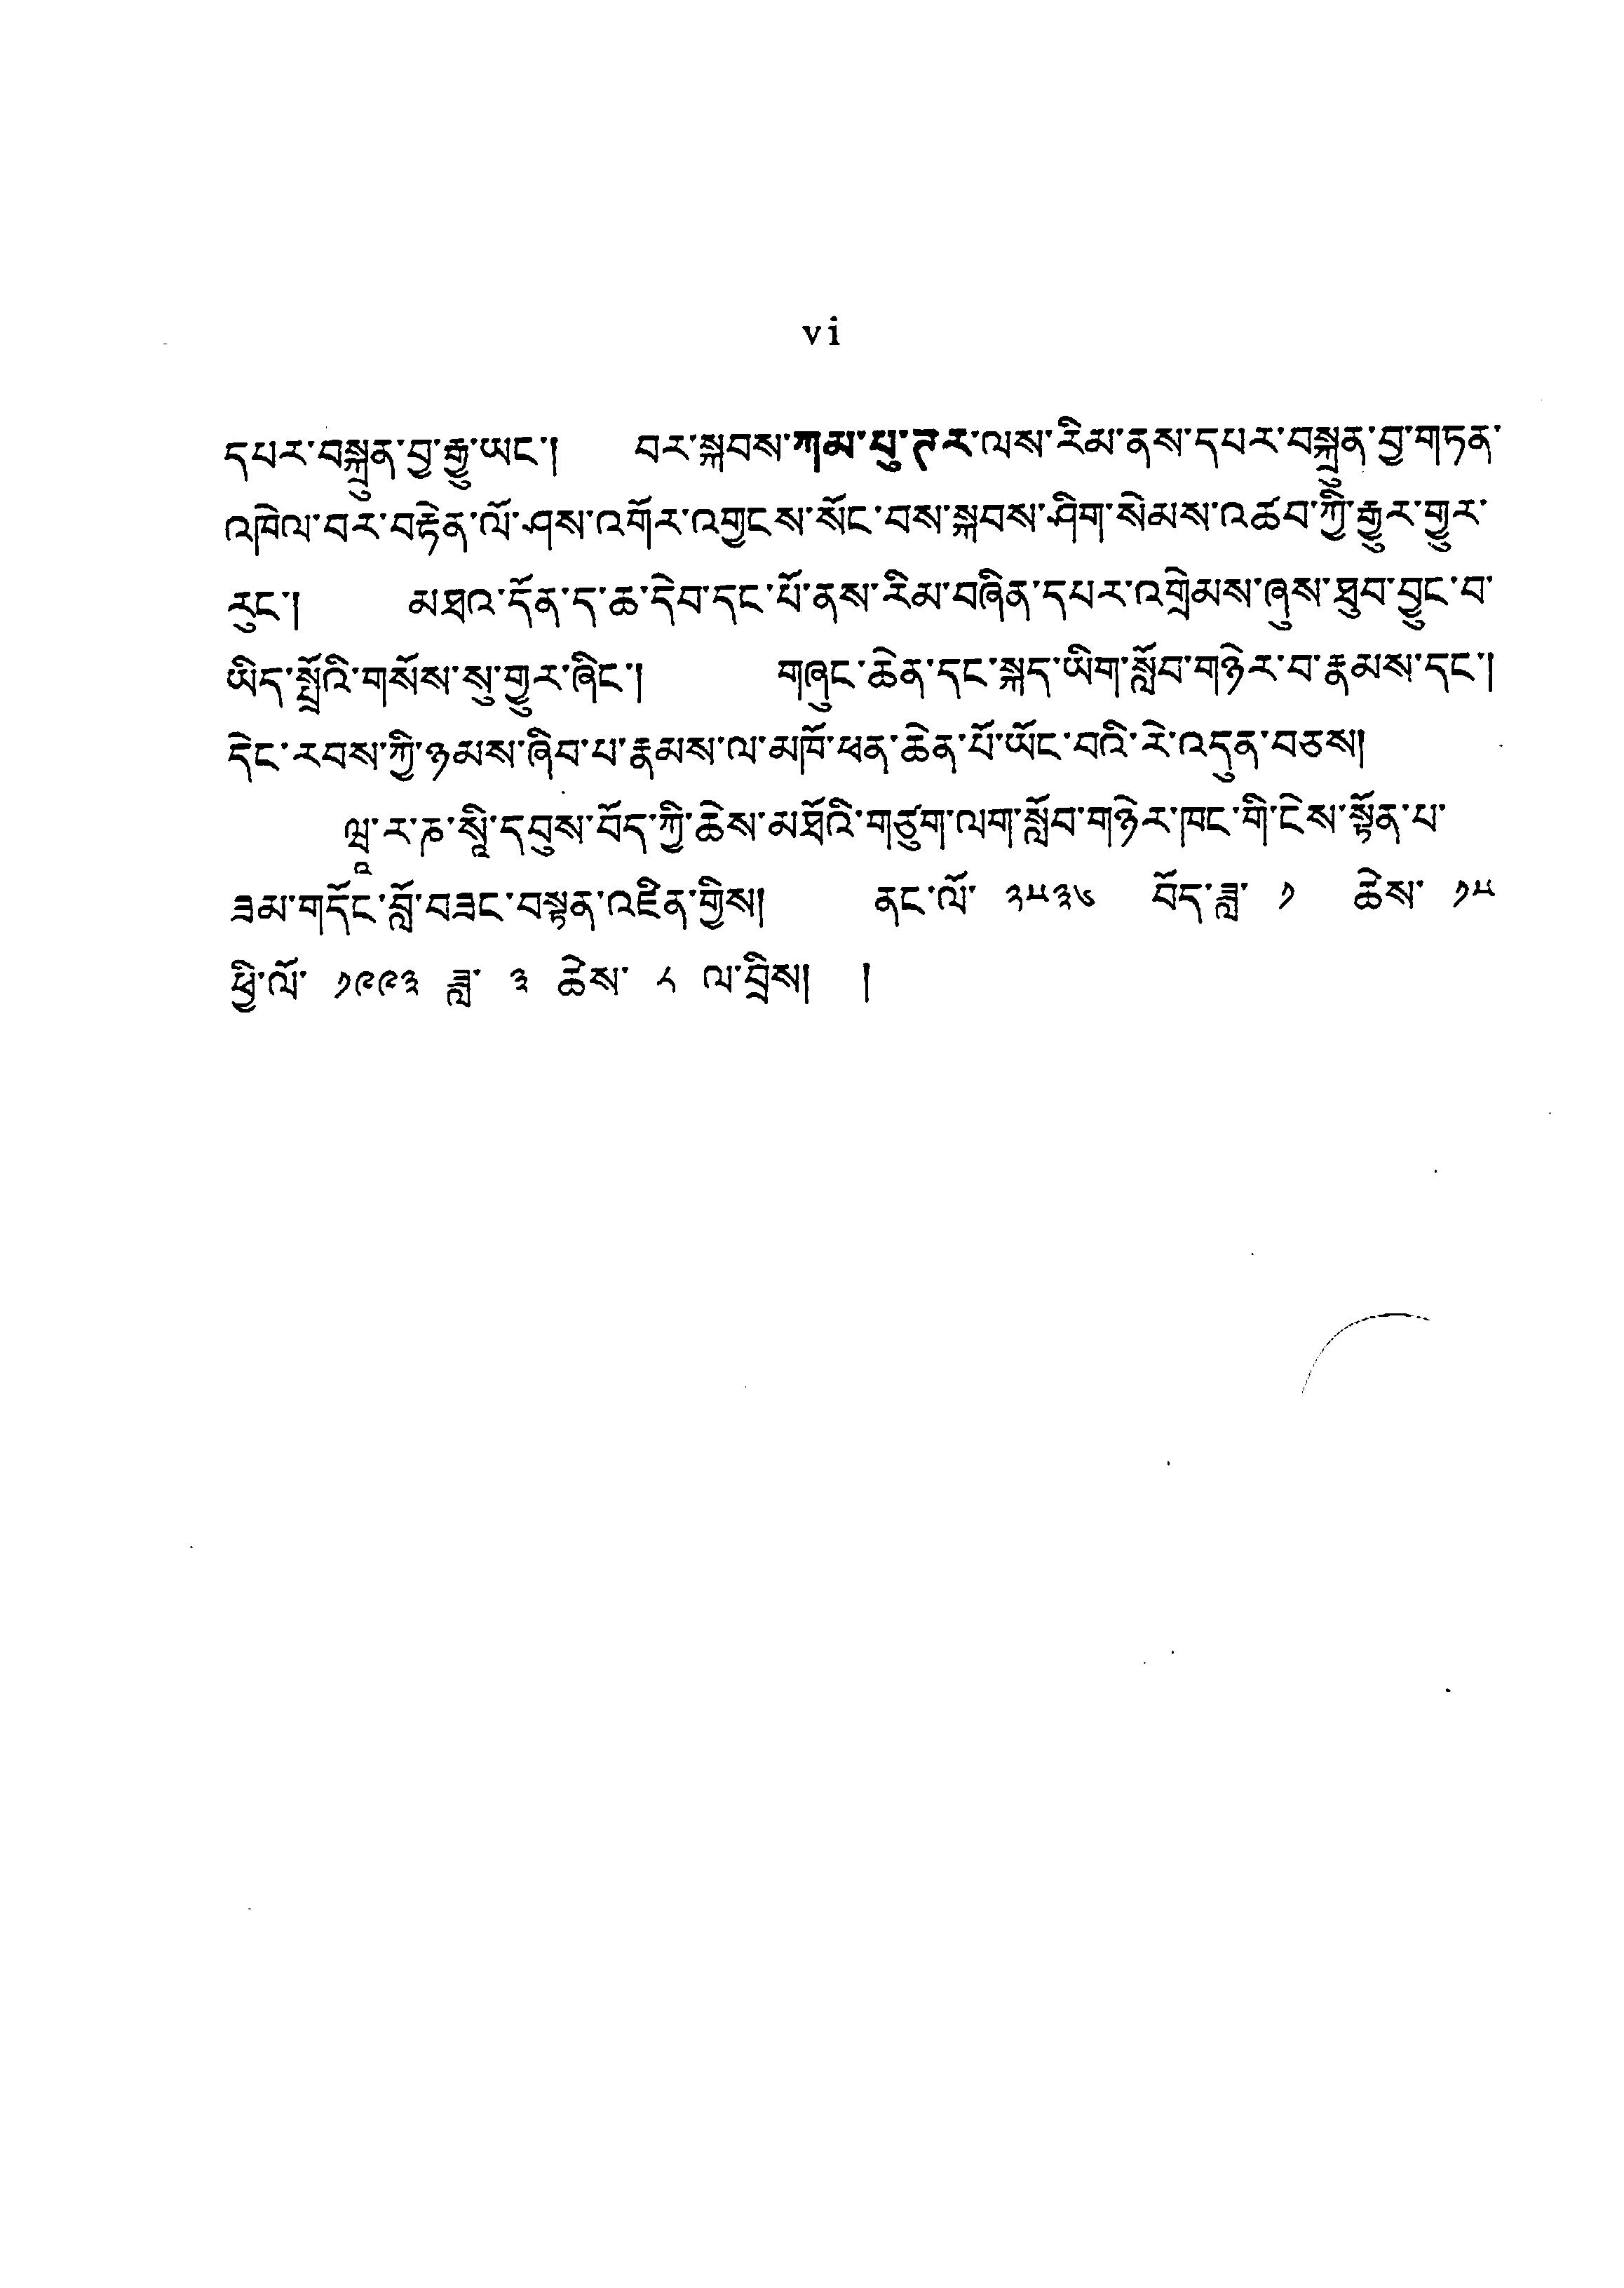 vi
དཔར་བསྐྲུན་བྱ་རྒྱུ་ཡང་། བར་སྐབས་ཀམ་པུ་ཊར་ལས་རིམ་ནས་དཔར་བསྐྲུན་བྱ་གཏན་
འཁེལ་བར་བརྟེན་ལོ་ཤས་འགོར་འགྱངས་སོང་བས་སྐབས་ཤིག་སེམས་འཚབ་ཀྱི་རྒྱུར་གྱུར་
རུང་། མཐའ་དོན་ད་ཆ་དེབ་དང་པོ་ནས་རིམ་བཞིན་དཔར་འགྲེམས་ཞུས་ཐུབ་བྱུང་བ་
ཡིད་སྤྲོའི་གསོས་སུ་གྱུར་ཞིང་། གཞུང་ཆེན་དང་སྐད་ཡིག་སློབ་གཉེར་བ་རྣམས་དང་།
དེང་རབས་ཀྱི་ཉམས་ཞིབ་པ་རྣམས་ལ་མཁོ་ཕན་ཆེན་པོ་ཡོང་བའི་རེ་འདུན་བཅས།
ཝཱ་ར་ཎ་སཱིི་དབུས་བོད་ཀྱི་ཆེས་མཐོའི་གཙུག་ལག་སློབ་གཉེར་ཁང་གི་ངེས་སྟོན་པ་
ཟམ་གདོང་བློ་བཟང་བསྟན་འཛིན་གྱིས། ནང་ལོ་ ༢༥༣༦ བོད་ཟླ་ ༡ ཆེས་ ༡༥
ཕྱི་ལོ་ ༡༩༩༣ ཟླ་ ༣ ཚེས་ ༨ ལ་བྲིས། །